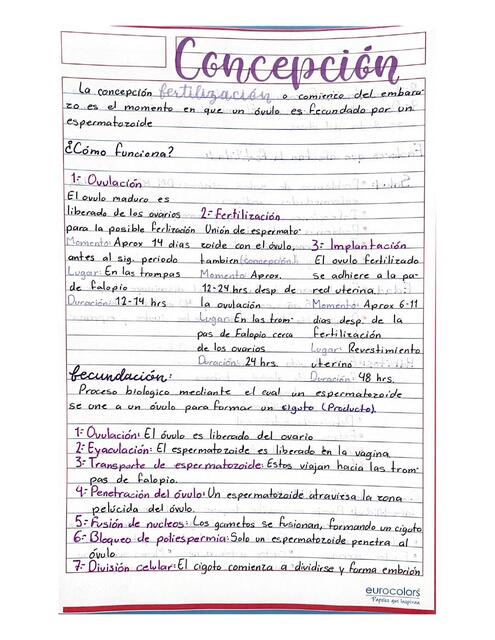 Concepción
La concepción fertilización o comienzo del embara-
zo es el momento en que un óvulo es fecundado por un
espermatozoide
¿Cómo funciona?
1.- Ovulación
El ovulo maduro es
liberado de los ovarios
para la posible ferlización
Momento: Aprox 14 dias
antes al sig. periodo
Lugar: En las trompas
de falopio
Duración: 12-14 hrs
2.- Fertilización
Unión de espermato-
zoide con el óvulo,
tambien (concepción).
Momento: Aprox.
12-24 hrs. desp de
la ovulación
Lugar: En las trom-
pas de Falopio cerca
de los ovarios
Duración: 24 hrs.
3.- Implantación
El ovulo fertilizado
se adhiere a la pa-
red uterina.
Momento: Aprox 6-11
dias desp. de la
fertilización
Lugar: Revestimiento
uterino
Duración: 48 hrs.
fecundación:
Proceso biologico mediante el cual un espermatozoide
se une a un óvulo para formar un cigoto (Producto).
1.- Ovulación: El óvulo es liberado del ovario
2.- Eyaculación: El espermatozoide es liberado en la vagina
3.- Transporte de espermatozoide: Estos viajan hacia las trom-
pas de falopio.
4.- Penetración del óvulo: Un espermatozoide atraviesa la zona
pelúcida del óvulo.
5.- Fusión de nucleos: Los gametos se fusionan, formando un cigoto
6.- Bloqueo de poliespermia: Solo un espermatozoide penetra al
óvulo
7.- División celular: El cigoto comienza a dividirse y forma embrión
eurocolors
Papeles que inspiran